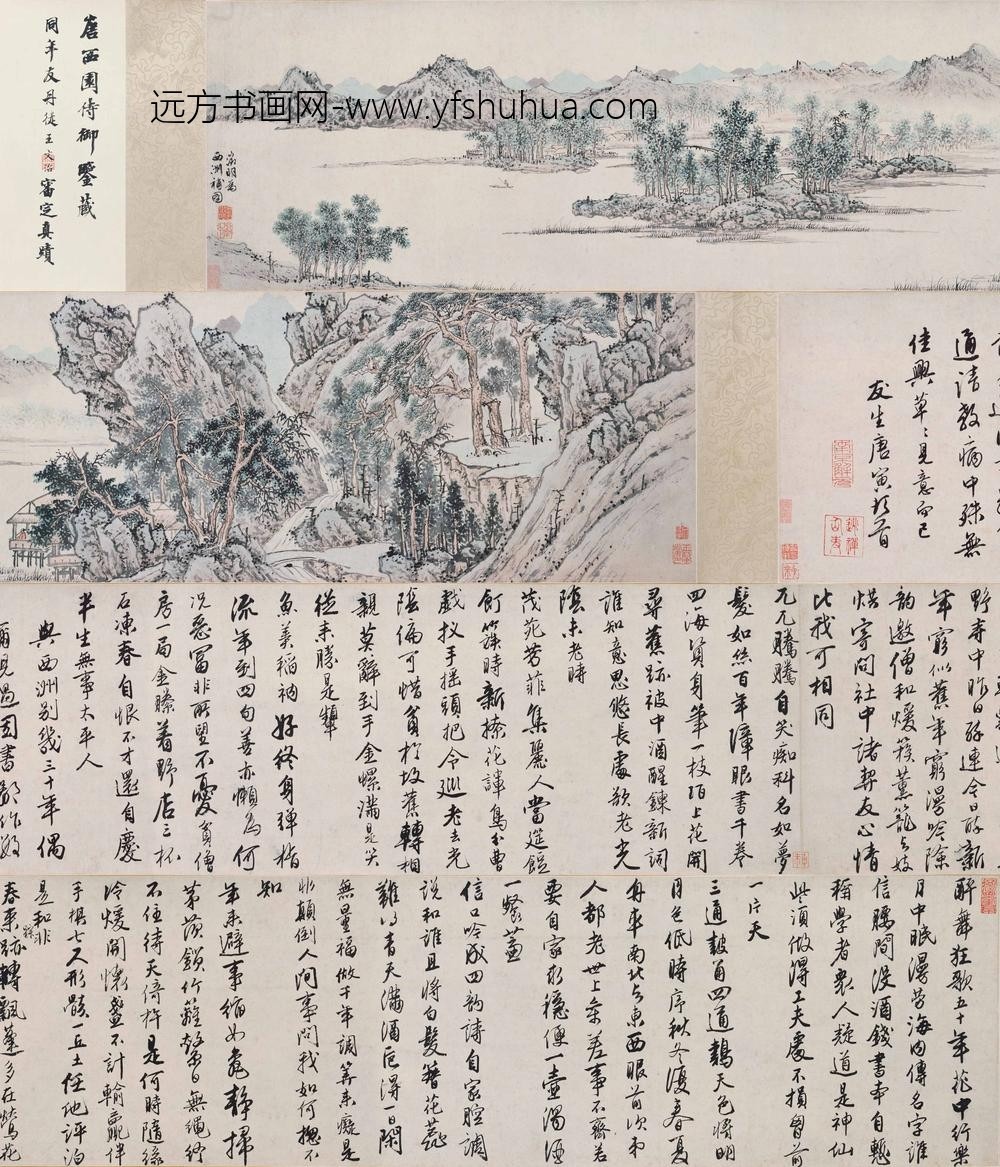 西園侍御鑒藏
同年友丹徒王文治審定真蹟
远方书画网-www.yfshuhua.com
徵明為
西洲補圖
通請教病中殊無
佳興草〻見意而已
友生唐寅頓首
野寺中昨日醉連今日醉新
年窮似舊年窮漫吟除
韵邀僧和煖簇薰籠与妓
烘寄問社中諸契友心情
比我可相同
兀兀騰騰自笑痴科名如夢
髮如絲百年障眼書千卷
四海資身筆一枝陌上花開
尋舊跡被中酒醒鍊新詞
誰知意思悠長處欲老光
陰未老時
茂苑芳菲集麗人當筵餖
飣簇時新揍花諢鳥分曹
戲拟手摇頭把令巡老去光
陰偏可惜貧於故舊轉相
親莫辭到手金螺滿是笑
從來勝是顰
魚羹稻衲好終身彈指
流年到四旬善亦懶為何
况惡冨非所望不憂貧僧
房一局金縢着野店三杯
石凍春自恨不才還自慶
半生無事太平人
與西洲別幾三十年偶
爾見過因書鄙作數
醉舞狂歌五十年花中行樂
月中眠漫勞海内傳名字誰
信腰間没酒錢書本自慙
稱學者衆人疑道是神仙
些須做得工夫處不損胷前
一片天
三通皷角四道鷄天色將明
月色低時序秋冬復春夏
舟車南北与東西眼前次第
人都老世上參差事不齊若
要自家求穩便一壺濁酒
一餐虀
信口吟成四韵詩自家腔調
説和誰且將白髮簪花蕊
難得青天滿酒巵得一日閑
無量福做千年調筭來癡是
非顛倒人间事問我如何揔不
知
年來避事縮如龜静掃
茅茨鎖竹籬繫日無繩紓
不住待天倚杵是何時隨緣
冷煖開懷盞不計輸贏伴
手棋七尺形骸一丘土任他評泊
是和非
春來踪跡轉飄蓬多在鶯花